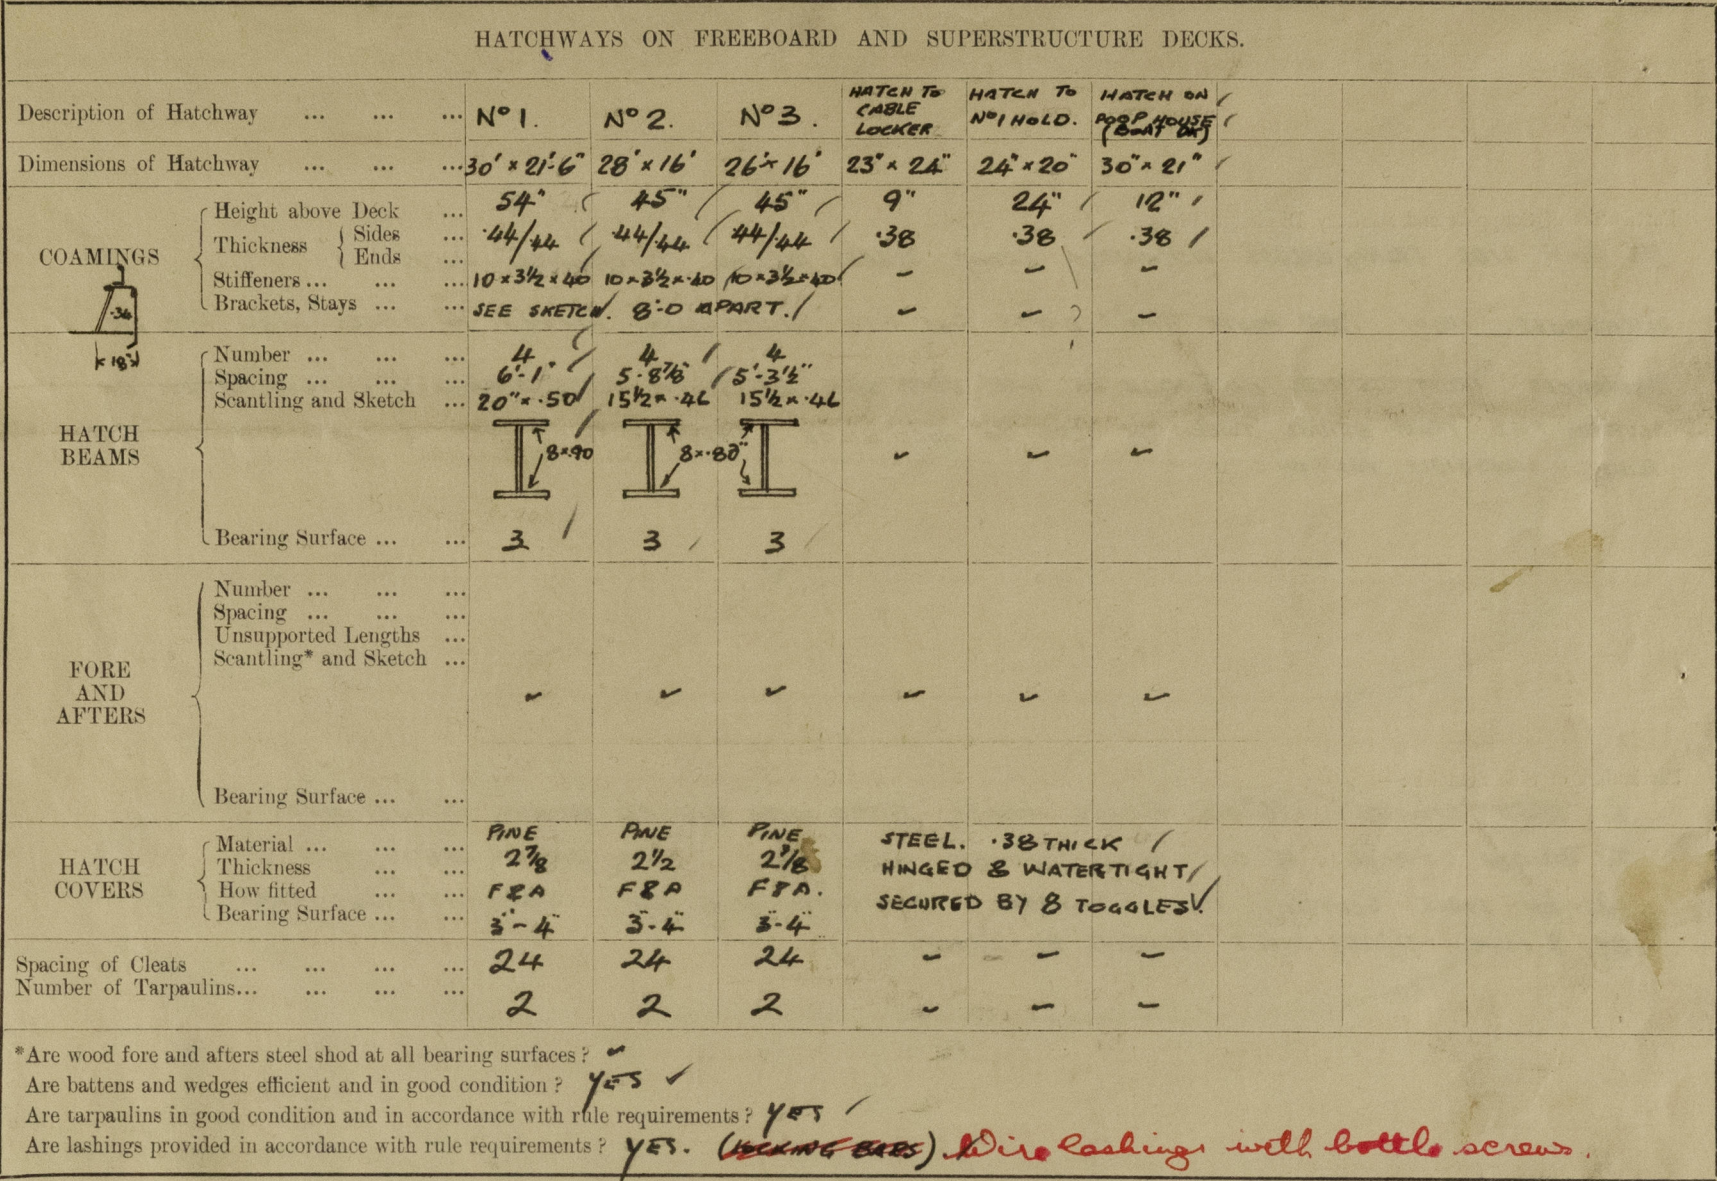 HATCHWAYS ON FREEBOARD AND SUPERSTRUCTURE DECKS.
Description of Hatchway ... ... ... No 1. No 2. No 3. HATCH TO CABLE LOCKER HATCH TO No 1 HOLD. HATCH ON POOP HOUSE (BOAT DK)
Dimensions of Hatchway ... ... ... 30' × 21'-6" 28' × 16' 26' × 16' 23" × 24" 24" × 20" 30" × 21"
COAMINGS
Height above Deck ... 54" 45" 45" 9" 24" 12"
Thickness { Sides ... Ends ... .44/.44 .44/.44 .44/.44 .38 .38 .38
Stiffeners ... ... ... 10 × 3½ × 40 10 × 3½ × .40 10 × 3½ × 40 - - -
Brackets, Stays ... ... SEE SKETCH. 8'-0 APART. - - -
.34
18"
HATCH BEAMS
Number ... ... ... 4 4 4
Spacing ... ... ... 6'-1" 5-8⅞" 5'-3½"
Scantling and Sketch ... 20" × .50 15½ × .46 15½ × .46
8×.90 8×.80"
- - -
Bearing Surface ... ... 3 3 3
FORE AND AFTERS
Number ... ... ...
Spacing ... ... ...
Unsupported Lengths ...
Scantling* and Sketch ...
- - - - - -
Bearing Surface ... ...
HATCH COVERS
Material ... ... ... PINE PINE PINE STEEL. .38 THICK
Thickness ... ... 2⅞ 2½ HINGED & WATERTIGHT
How fitted ... ... F & A F & A F & A. SECURED BY 8 TOGGLES
Bearing Surface ... ... 3"-4" 3"-4" 3"-4"
Spacing of Cleats ... ... ... ... 24 24 24 - - -
Number of Tarpaulins... ... ... ... 2 2 2 - - -
*Are wood fore and afters steel shod at all bearing surfaces? -
Are battens and wedges efficient and in good condition? YES ✓
Are tarpaulins in good condition and in accordance with rule requirements? YES
Are lashings provided in accordance with rule requirements? YES. (LOCKING BARS). Wire lashings with bottle screws.